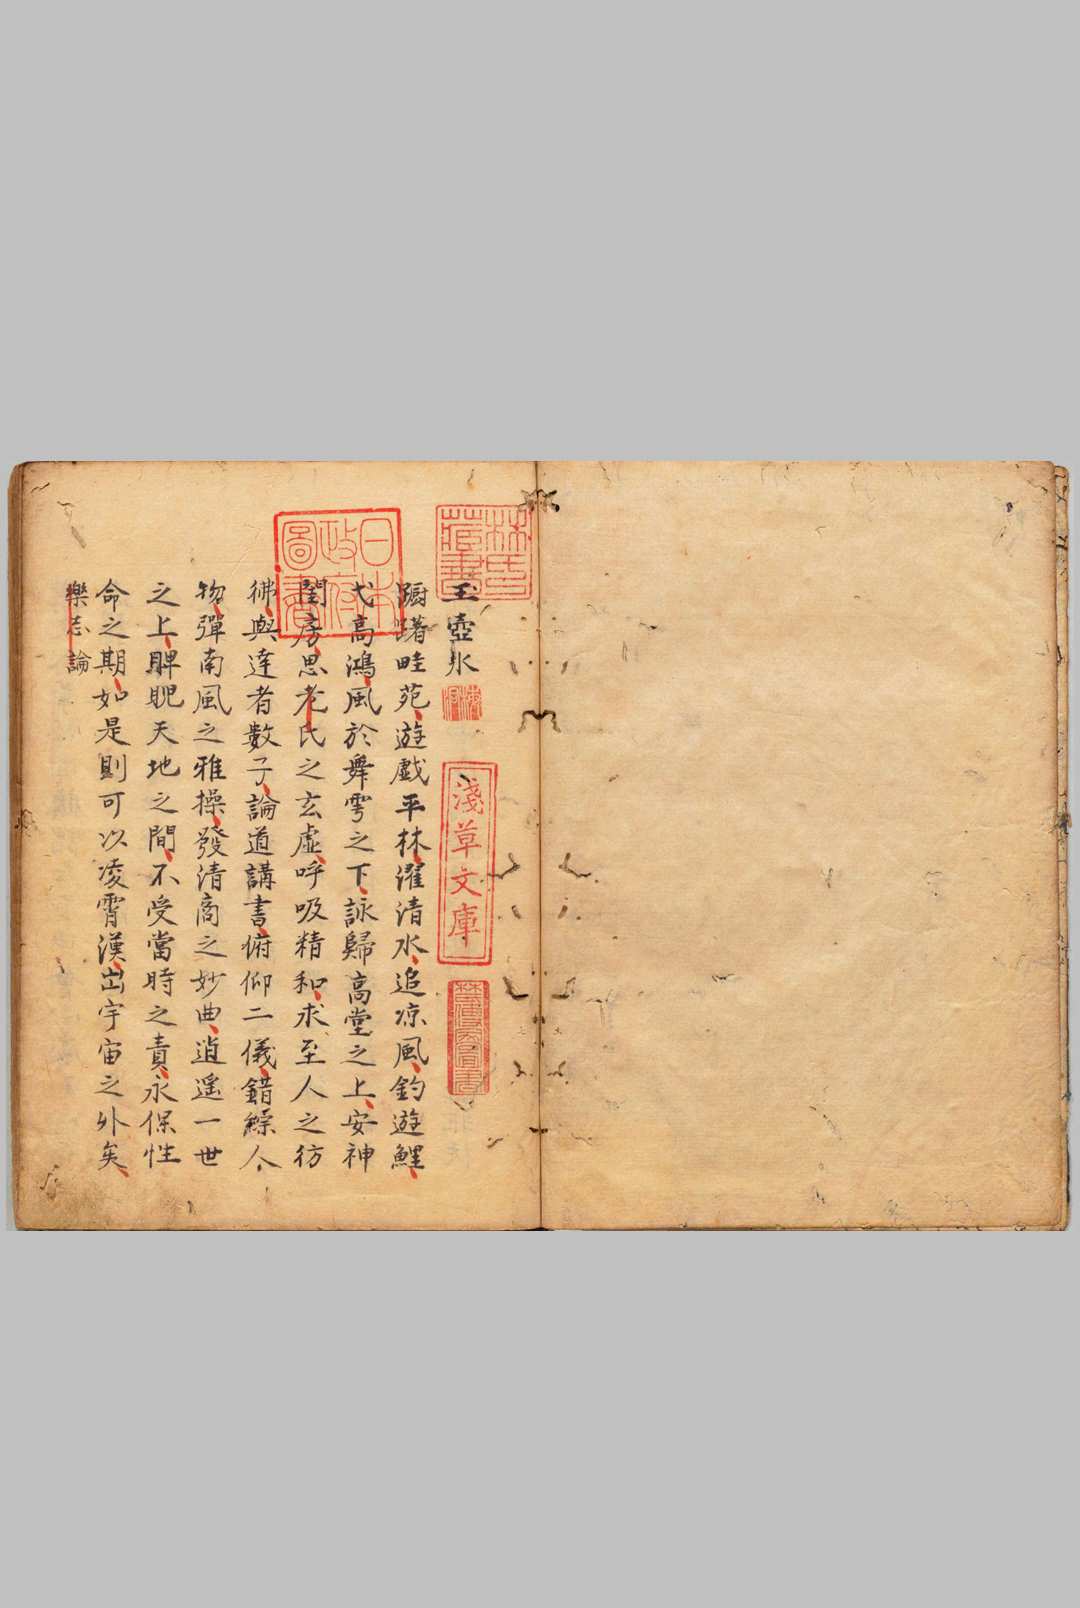 玉壺氷
躕躇畦苑遊戯平林濯清水追凉風釣遊鯉
弋高鴻風於舞雩之下詠歸高堂之上安神
閨房思老氏之玄虛呼吸精和求至人之彷
彿與達者數子論道講書俯仰二儀錯綜人
物彈南風之雅操發清商之妙曲逍遥一世
之上睥睨天地之間不受當時之責永保性
命之期如是則可以凌霄漢出宇宙之外矣
樂志論
林氏藏書
日本政府圖書
淺草文庫